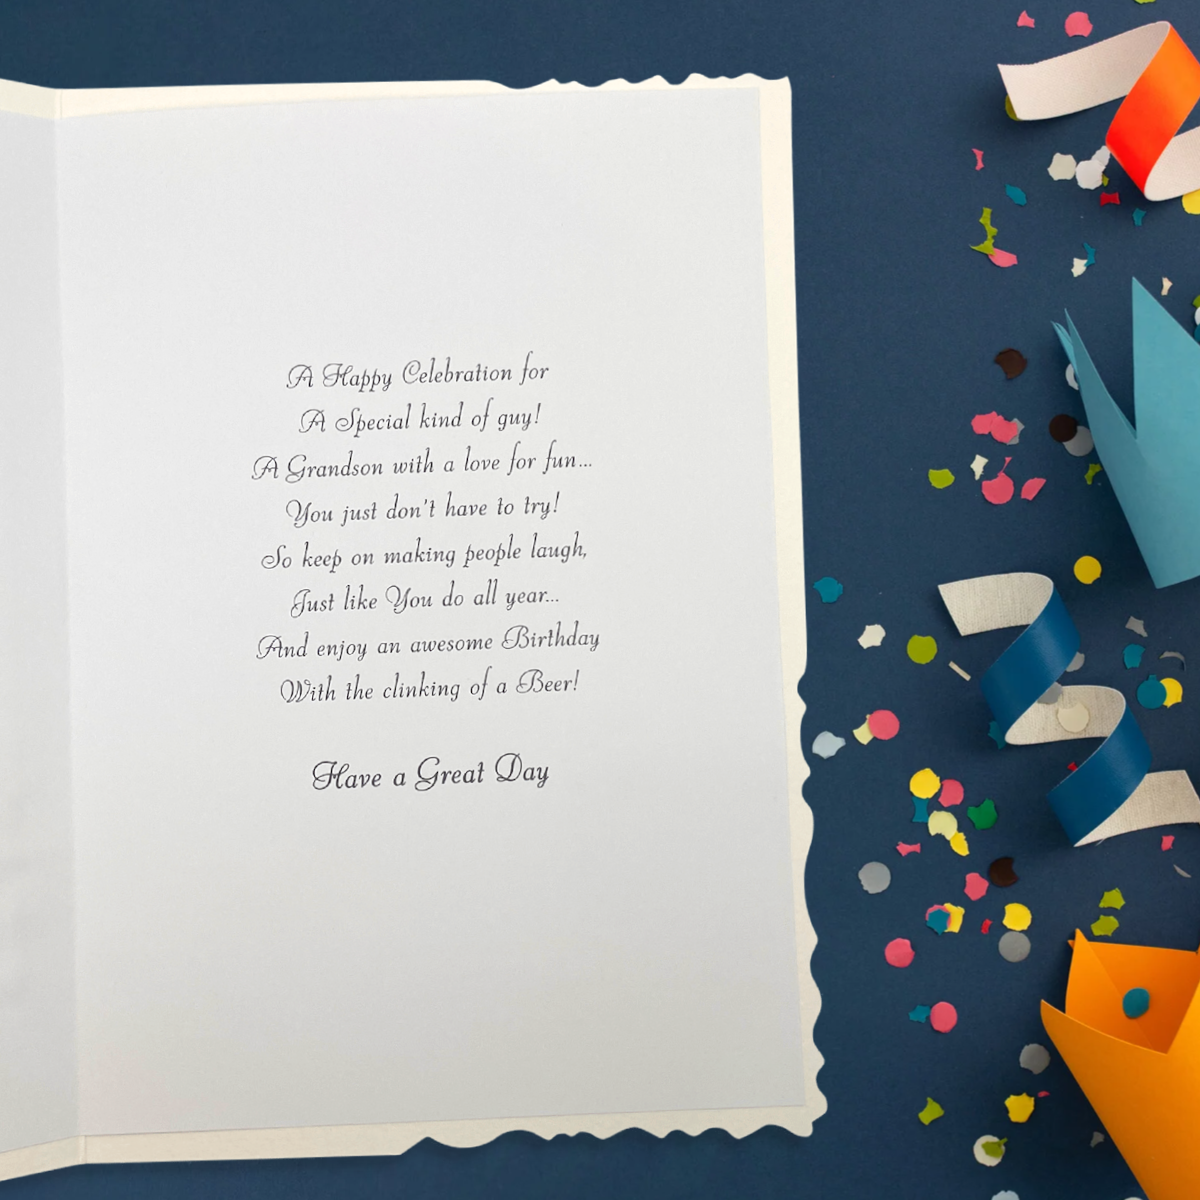 A Happy Celebration for
A Special kind of guy!
A Grandson with a love for fun...
You just don't have to try!
So keep on making people laugh,
Just like You do all year...
And enjoy an awesome Birthday
With the clinking of a Beer!
Have a Great Day